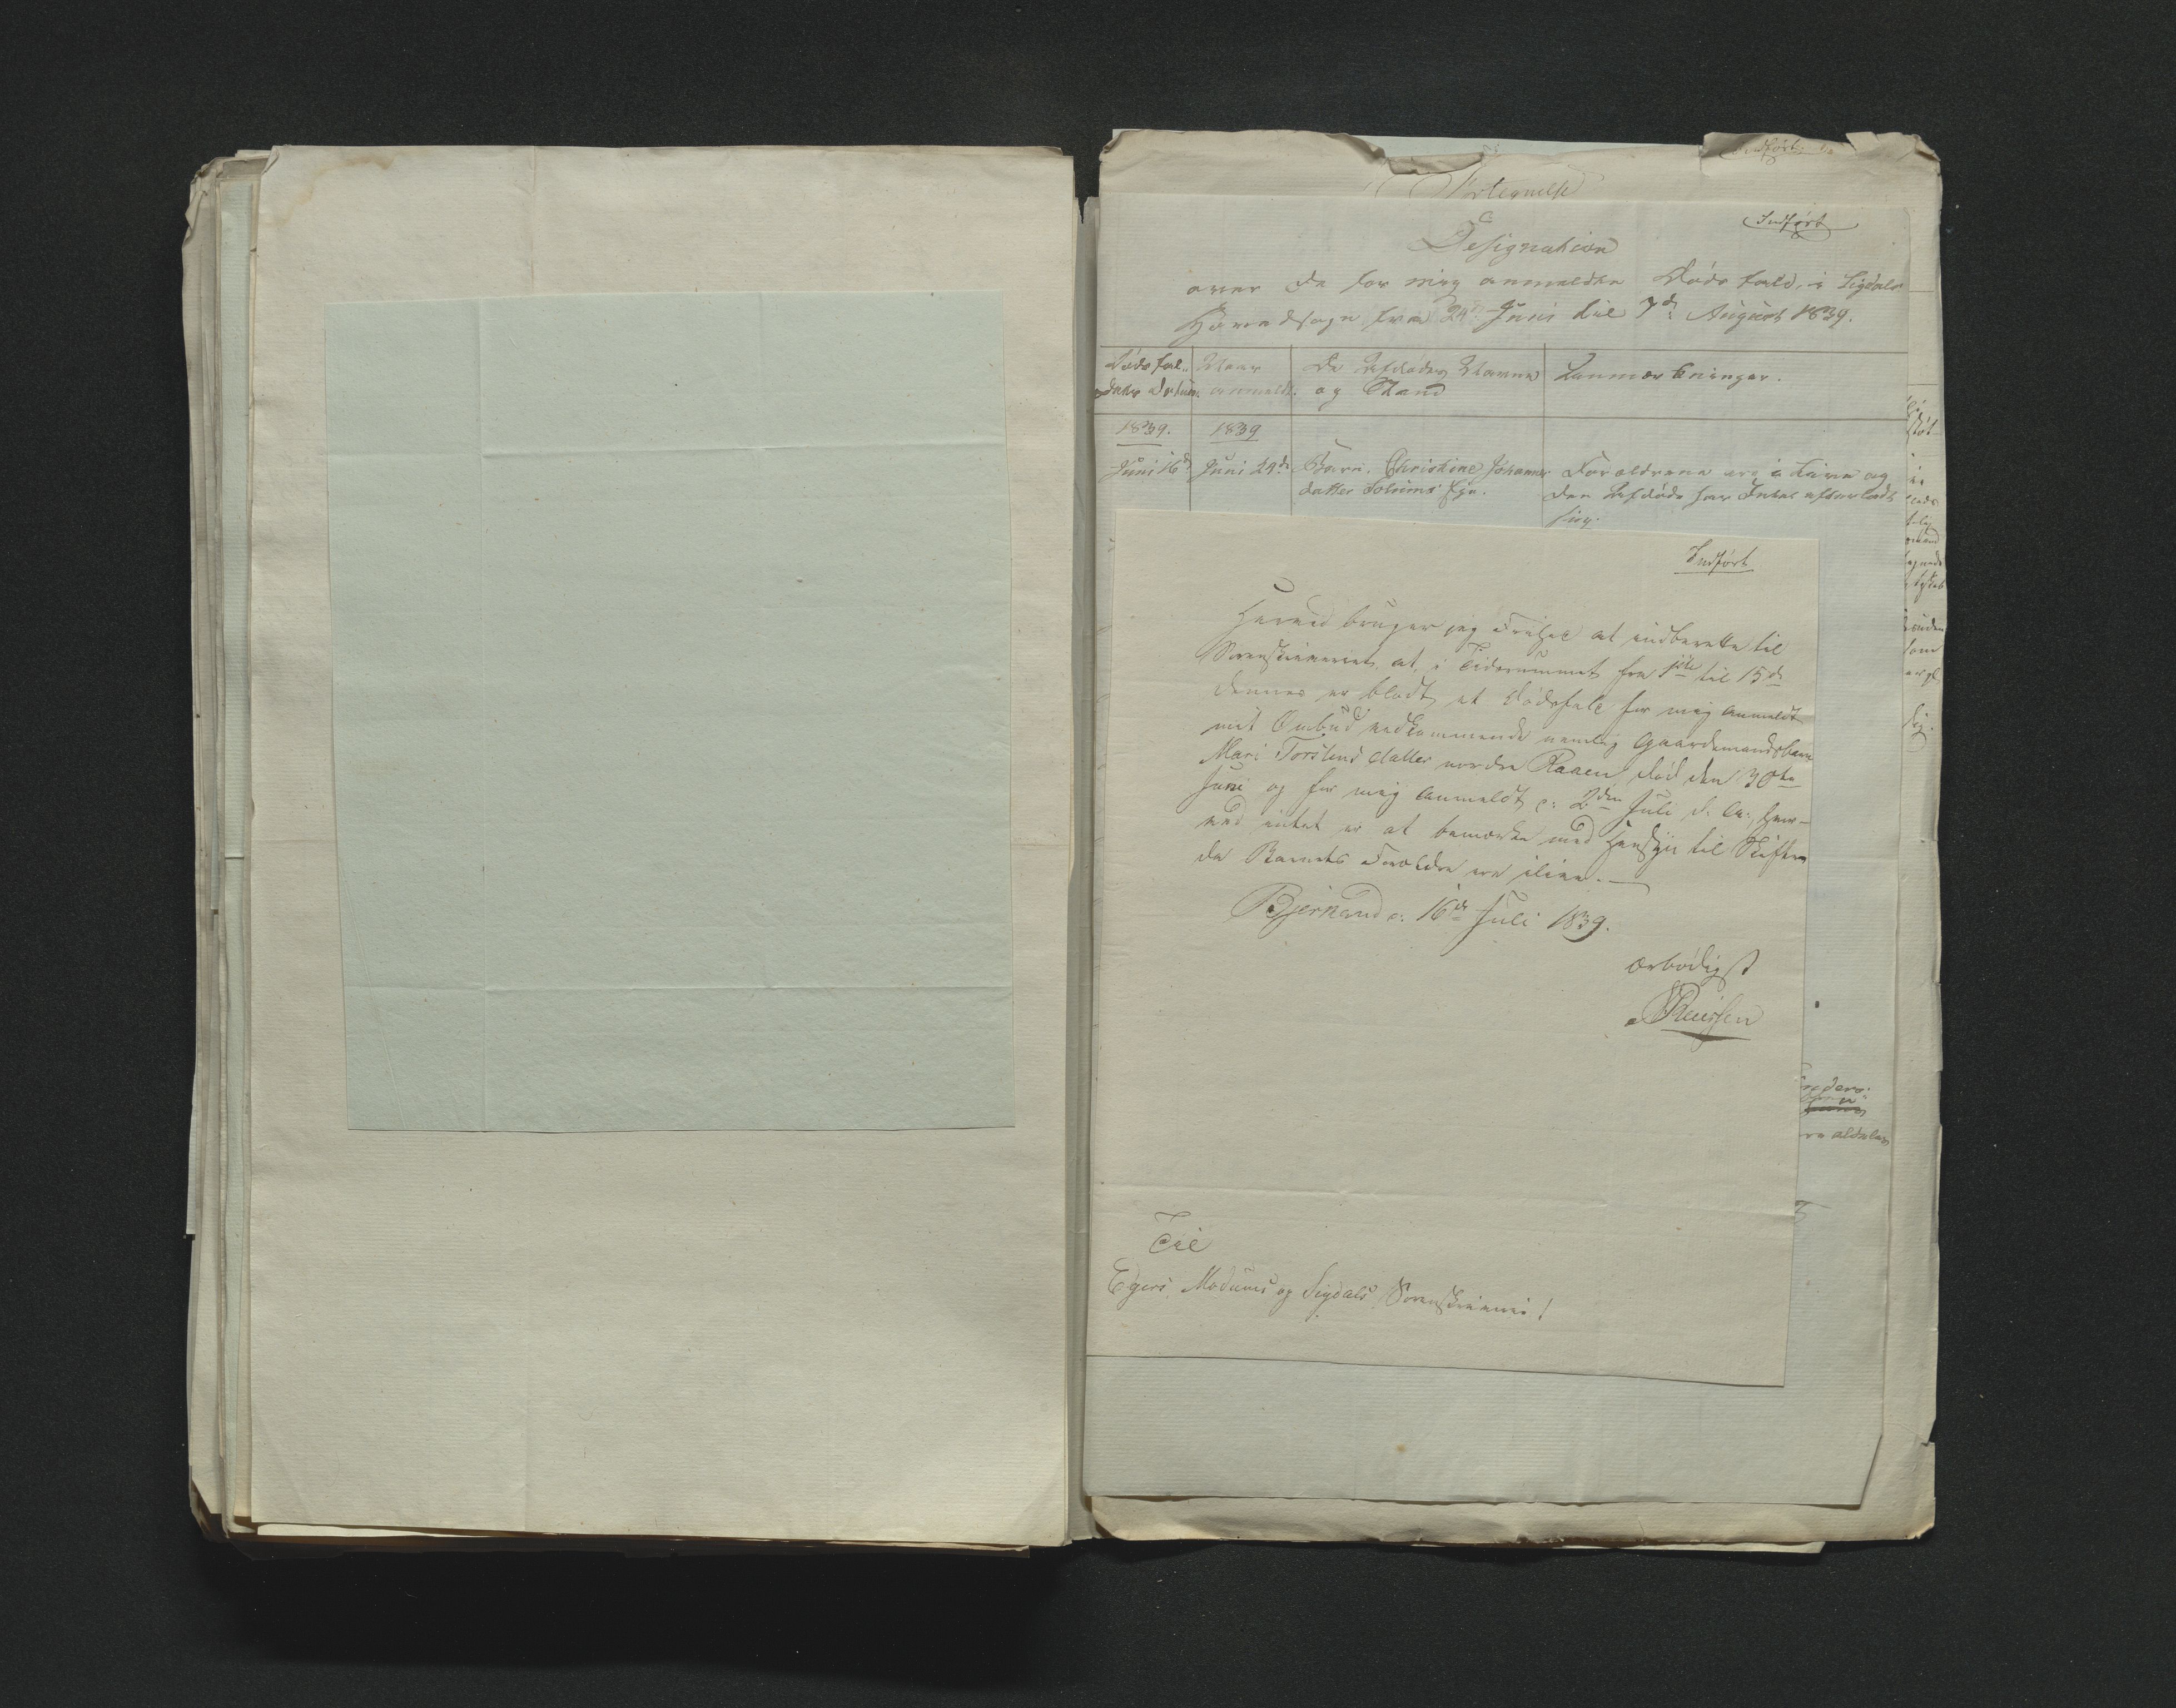 Indført
Fortegnelse
Indført
Designation
over de for mig anmeldte Dødsfald, i Sigdals
Hovedsogn fra 24de Juni til 7de August 1839.
Dødsfal-
denes Datum
Naar
anmeldt.
De Afdødes Navne
og Stand
Anmærkninger.
1839.
1839
Juni 16de
Juni 24de
Barn, Christine Johannes
datter Solums Eje.
Forældrene ere i Live og
den Afdøde har Intet efterladt
sig.
Indført
Herved bruger jeg Frihed at indberette til
Sorenskriveriet at i Tidsrummet fra 1ste til 15de
dennes er blodt et Dødsfald for mig anmeldt
mit Ombud vedkommende nemlig Gaardmandsbarn
Mari Torstensdatter nordre Raaen død den 30te
Juni og for mig anmeldt d: 2den Juli d. A., hvor-
ved intet er at bemærke med Hensyn til Skifte
da Barnets Forældre ere ilive.
Bjerkand d: 16de Juli 1839.
Ærbødigst
Reiersen
Til
Egers, Modums og Sigdals Sorenskriveri!